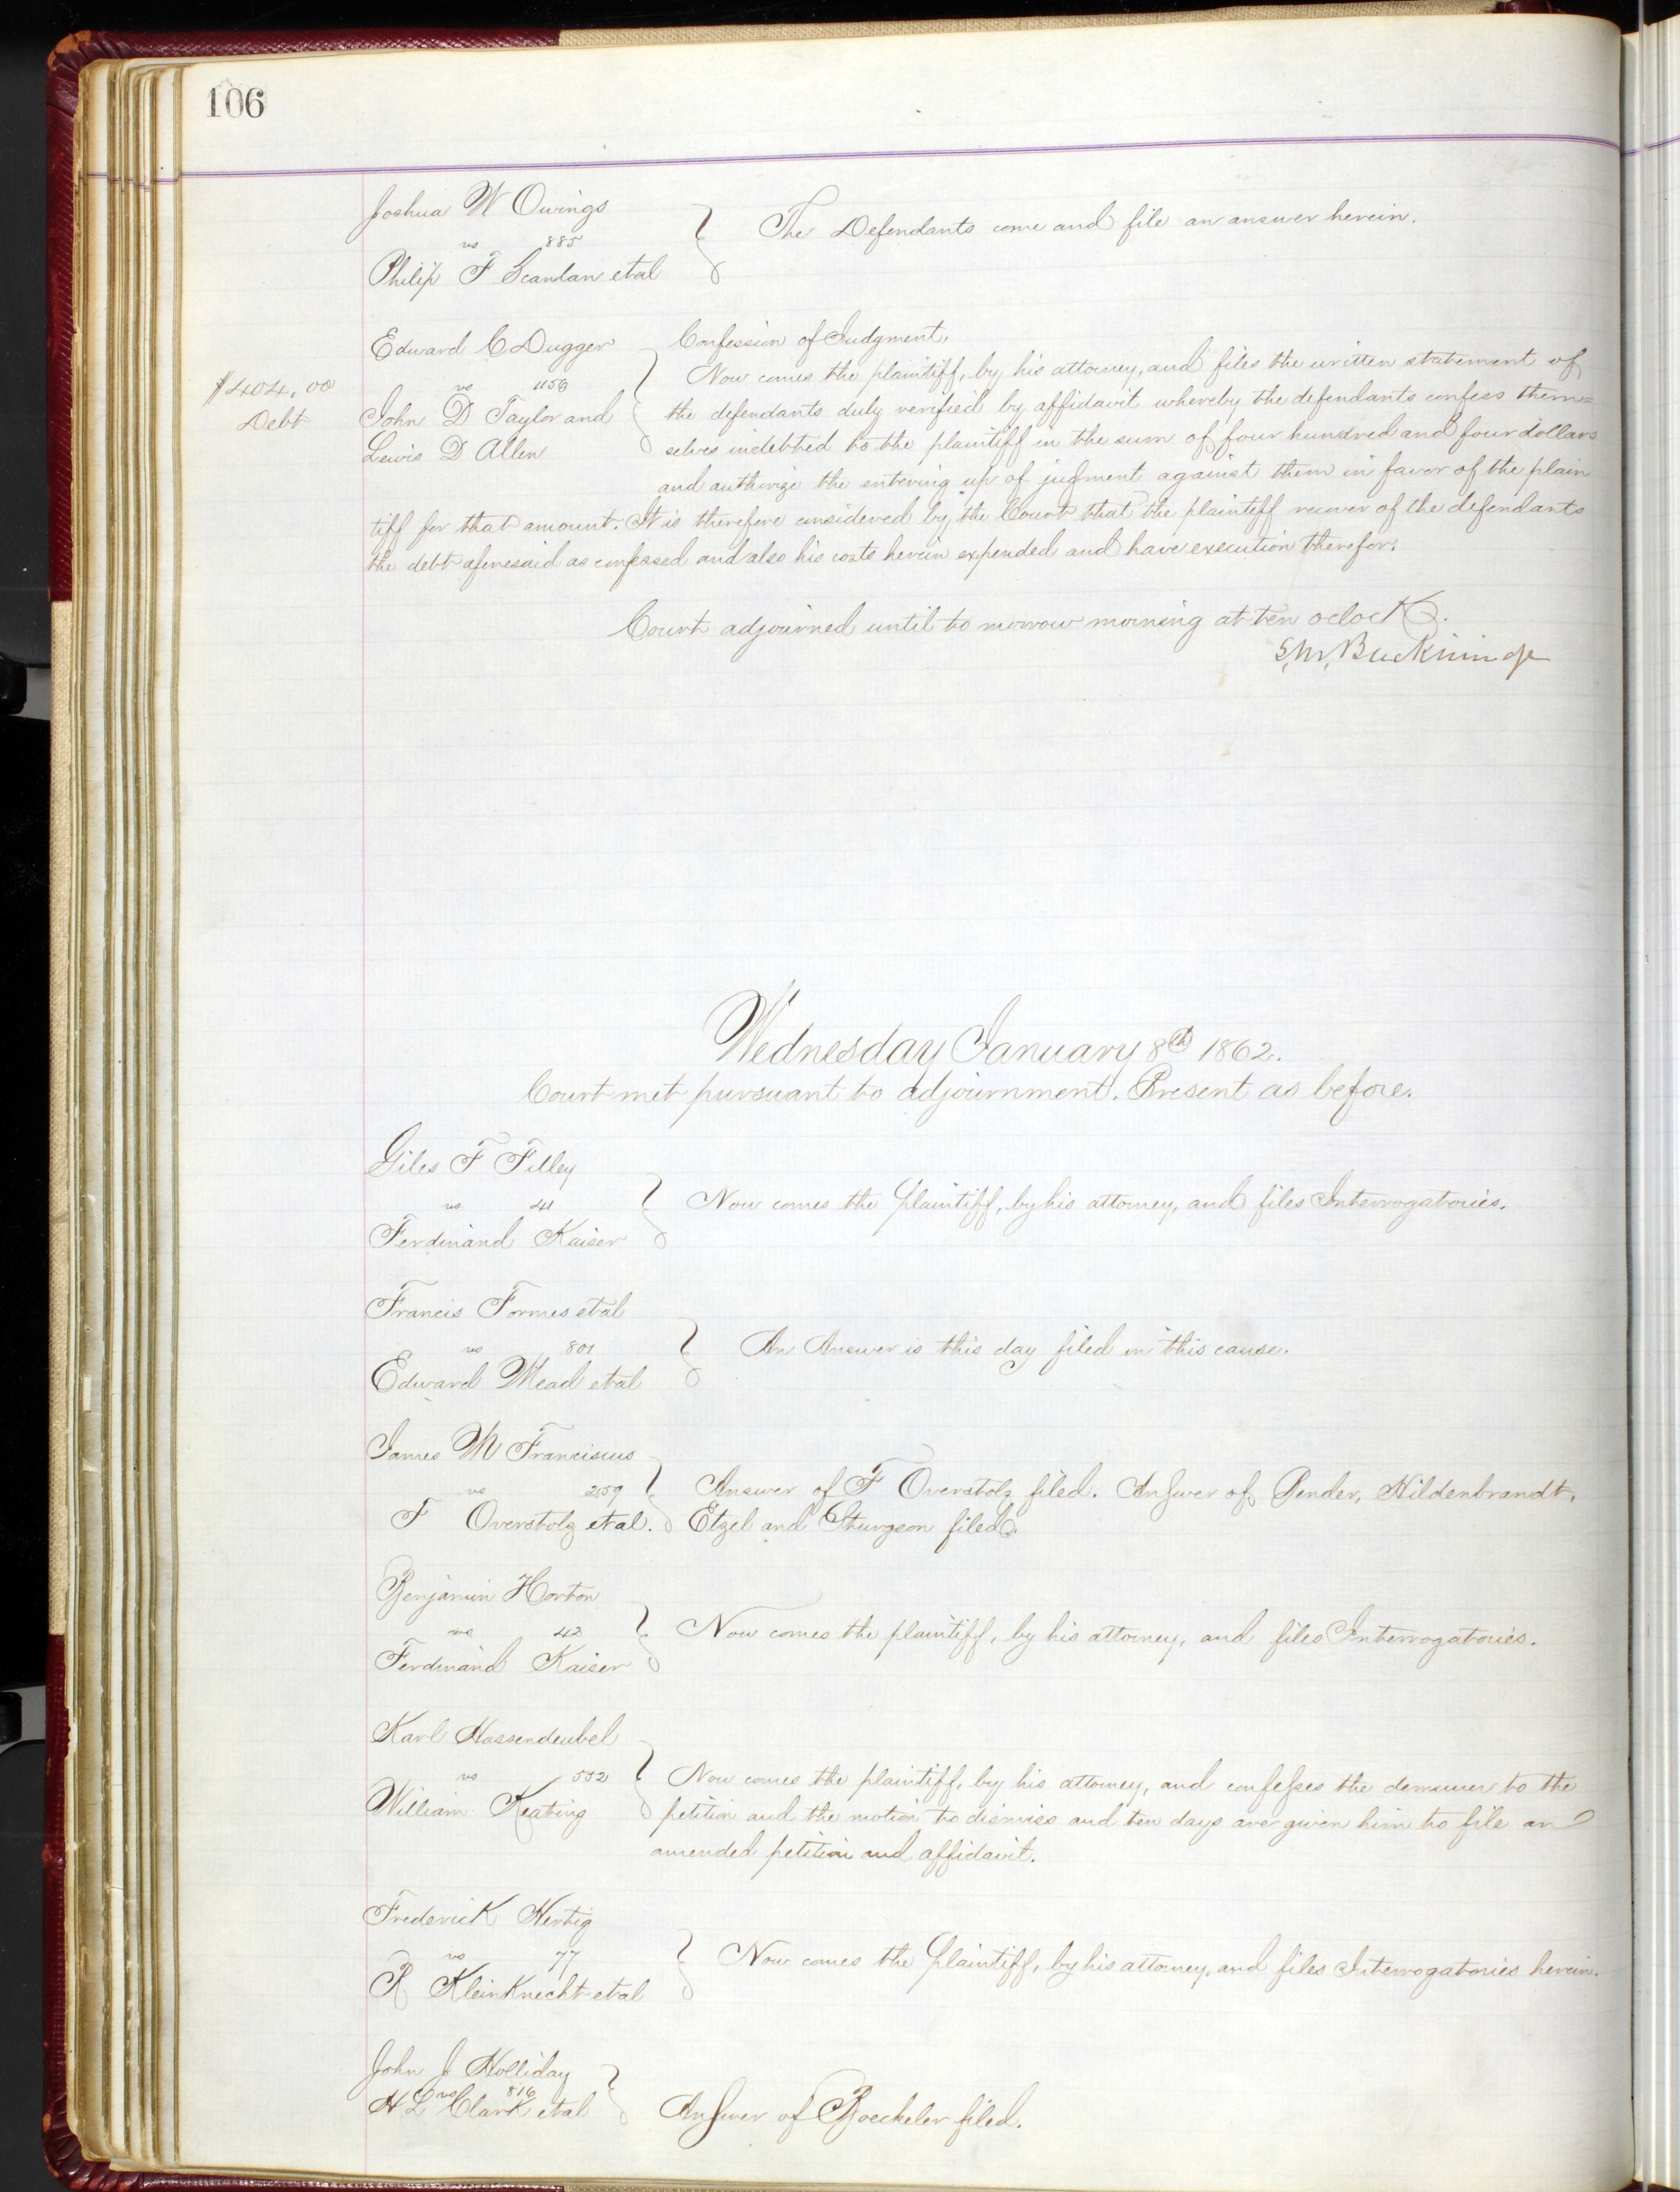 106
Joshua W Owings
vs 885
Philip F Scanlan et al
The Defendants come and file an answer herein.
Edward C Dugger
vs 1156
John D Taylor and
Lewis D Allen
$404.00
Debt
Confession of Judgment.
Now comes the plaintiff, by his attorney, and files the written statement of
the defendants duly verified by affidavit whereby the defendants confess them=
selves indebted to the plaintiff in the sum of four hundred and four dollars
and authorize the entering up of jugment against them in favor of the plain
tiff for that amount. It is therefore considered by the Court that the plaintiff recover of the defendants
the debt aforesaid as confessed and also his costs herein expended and have execution therefor.
Court adjourned until to morrow morning at ten oclock.
S.M. Breckinridge
Wednesday January 8th 1862.
Court met pursuant to adjournment. Present as before.
Giles F Filley
vs 41
Ferdinand Kaiser
Now comes the plaintiff, by his attorney, and files Interrogatories.
Francis Formes et al
vs 801
Edward Mead et al
An Answer is this day filed in this cause.
James M Franciscus
vs 259
F Overstolz et al.
Answer of F Overstolz filed. Answer of Pender, Hildenbrandt,
Etzel and Sturgeon filed.
Benjamin Horton
vs 42
Ferdinand Kaiser
Now comes the plaintiff, by his attorney, and files Interrogatories.
Karl Hassendeubel
vs 552
William Keating
Now comes the plaintiff, by his attorney, and confesses the demurrer to the
petition and the motion to dismiss and ten days are given him to file an
amended petition and affidavit.
Frederick Hertig
vs 77
R KleinKnecht et al
Now comes the Plaintiff, by his attorney, and files Interrogatories herein.
John J Holliday
vs 816
H L Clark et al
Answer of Boeckeler filed.